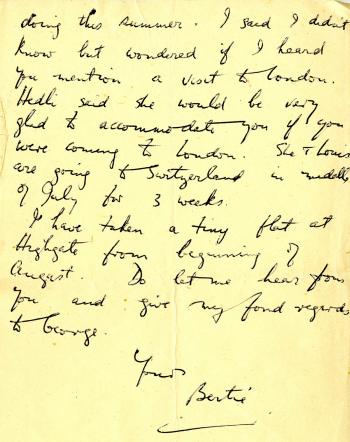 doing this summer. I said I didn't
know but wondered if I heard
you mention a visit to London.
Hedli said she would be very
glad to accommodate you if you
were coming to London. She & Louis
are going to Switzerland in middle
of July for 3 weeks.
I have taken a tiny flat at
Highgate from beginning of
August. Do let me hear from
you and give my fond regards
to George.
Yours
Bertie